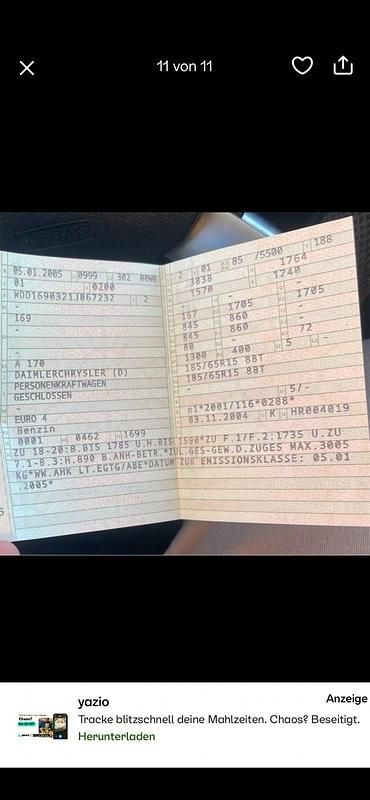 11 von 11
05.01.2005 0999 302
01 0200
WDD1690321J067232 2
-
169
-
-
-
A 170
DAIMLERCHRYSLER (D)
PERSONENKRAFTWAGEN
GESCHLOSSEN
-
EURO 4
Benzin
0001 0462 1699
2 01 85 /5500 188
3838 1764
1570 1240
- -
157 1705 1705
845 860 -
845 860 -
80 - 72
1300 400 5 -
185/65R15 88T
185/65R15 88T
-
5/-
e1*2001/116*0288*
03.11.2004 K HR004019
ZU 18-20:B.BIS 1785 U.H.BIS 1590*ZU F.1/F.2:1735 U.ZU
7.1-8.3:H.890 B.ANH-BETR.*ZUL.GES-GEW.D.ZUGES MAX.3005
KG*WW.AHK LT.EGTG/ABE*DATUM ZUR EMISSIONSKLASSE: 05.01
.2005*
yazio
Anzeige
Tracke blitzschnell deine Mahlzeiten. Chaos? Beseitigt.
Herunterladen